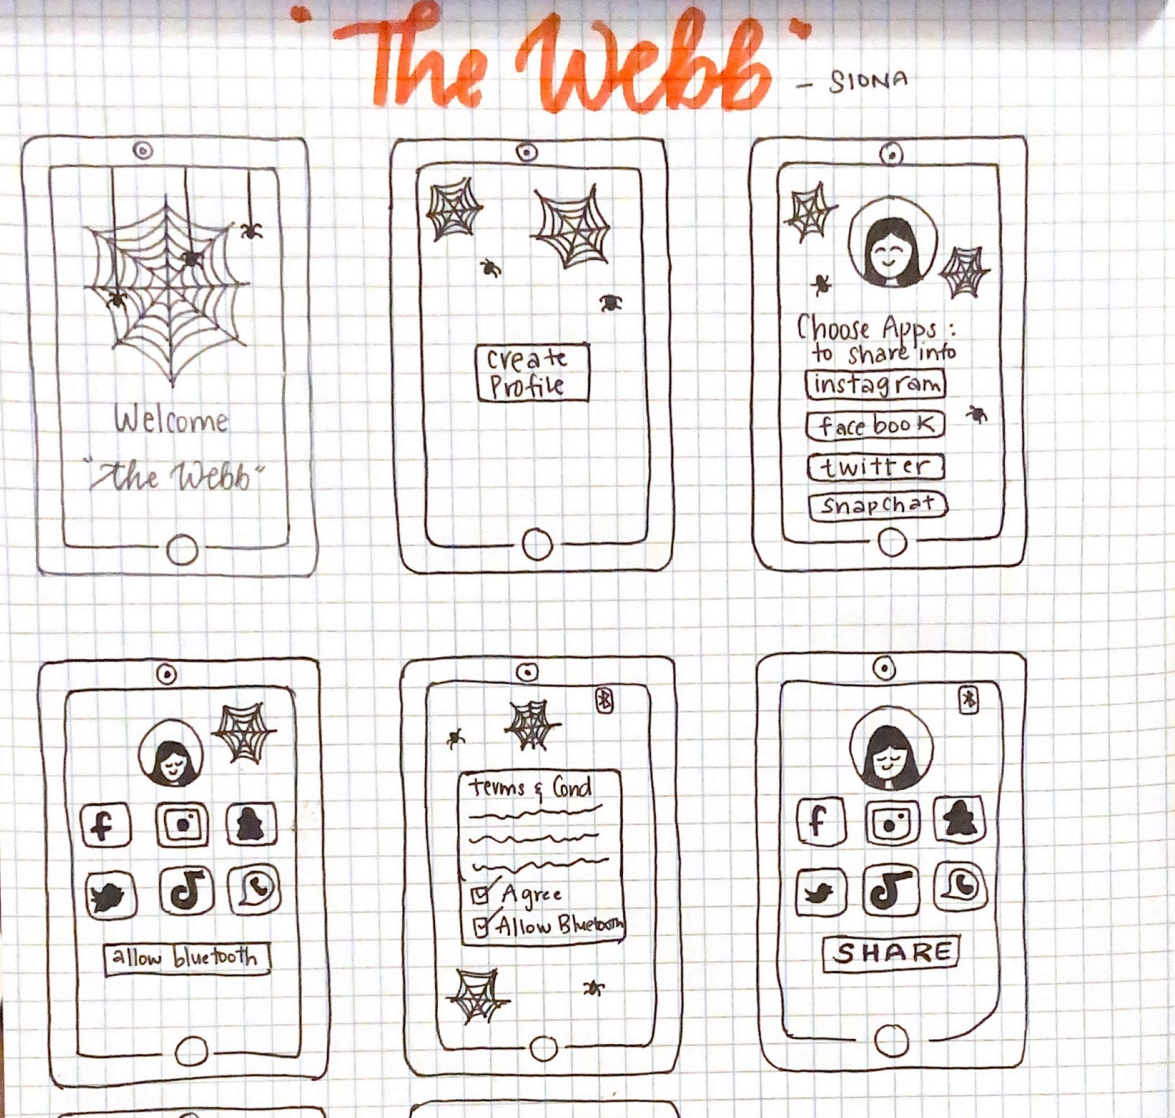 "The Webb" - SIONA
Welcome
"The Webb"
Create
Profile
Choose Apps :
to share into
instagram
facebook
twitter
snapchat
f
allow bluetooth
terms & Cond
Agree
Allow Bluetooth
f
SHARE